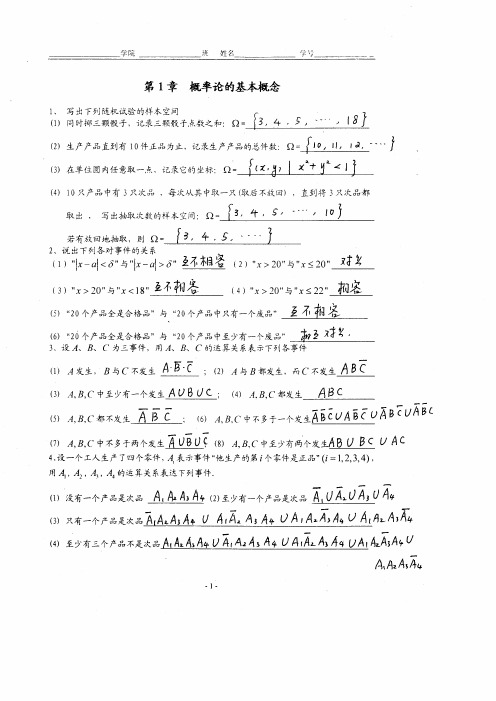 学院 班 姓名 学号
第1章 概率论的基本概念
1、 写出下列随机试验的样本空间
(1) 同时掷三颗骰子，记录三颗骰子点数之和；Ω= {3, 4, 5, ····, 18}
(2) 生产产品直到有10件正品为止，记录生产产品的总件数；Ω= {10, 11, 12, ····}
(3) 在单位圆内任意取一点，记录它的坐标；Ω= {(x,y) | x²+y²<1}
(4) 10只产品中有3只次品，每次从其中取一只(取后不放回)，直到将3只次品都
取出， 写出抽取次数的样本空间；Ω= {3, 4, 5, ····, 10}
若有放回地抽取，则 Ω= {3, 4, 5, ····}
2、说出下列各对事件的关系
(1) "|x−a|<δ"与"|x−a|>δ" 互不相容 (2) "x>20"与"x≤20" 对立
(3) "x>20"与"x<18" 互不相容 (4) "x>20"与"x≤22" 相容
(5) “20个产品全是合格品”与“20个产品中只有一个废品” 互不相容
(6) “20个产品全是合格品”与“20个产品中至少有一个废品” 相互对立.
3、设A、B、C为三事件，用A、B、C的运算关系表示下列各事件
(1) A发生，B与C不发生 A·B̅·C̅ ；(2) A与B都发生，而C不发生 ABC̅
(3) A,B,C中至少有一个发生 A∪B∪C ；(4) A,B,C都发生 ABC
(5) A,B,C都不发生 A̅ B̅ C̅ ；(6) A,B,C中不多于一个发生 A̅B̅C̅∪AB̅C̅∪A̅BC̅∪A̅B̅C
(7) A,B,C中不多于两个发生 A̅∪B̅∪C̅ (8) A,B,C中至少有两个发生 AB∪BC∪AC
4.设一个工人生产了四个零件，Aᵢ表示事件“他生产的第i个零件是正品”(i=1,2,3,4)，
用A₁, A₂, A₃, A₄的运算关系表达下列事件.
(1) 没有一个产品是次品 A₁A₂A₃A₄ (2) 至少有一个产品是次品 A̅₁∪A̅₂∪A̅₃∪A̅₄
(3) 只有一个产品是次品 A̅₁A₂A₃A₄ ∪ A₁A̅₂A₃A₄ ∪ A₁A₂A̅₃A₄ ∪ A₁A₂A₃A̅₄
(4) 至少有三个产品不是次品 A₁A₂A₃A₄ ∪ A̅₁A₂A₃A₄ ∪ A₁A̅₂A₃A₄ ∪ A₁A₂A̅₃A₄ ∪
A₁A₂A₃A̅₄
- 1 -